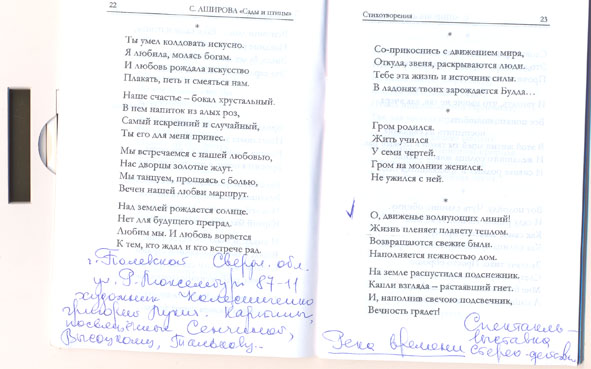 22
С. АШИРОВА «Сады и птицы»
*
Ты умел колдовать искусно.
Я любила, молясь богам.
И любовь рождала искусство
Плакать, петь и смеяться нам.
Наше счастье – бокал хрустальный.
В нем напиток из алых роз,
Самый искренний и случайный,
Ты его для меня принес.
Мы встречаемся с нашей любовью,
Нас дворцы золотые ждут.
Мы танцуем, прощаясь с болью,
Вечен нашей любви маршрут.
Над землей рождается солнце.
Нет для будущего преград.
Любим мы. И любовь ворвется
К тем, кто ждал и кто встрече рад.
г. Полевской Сверд. обл.
ул. Р. Люксембург 87-11
художник
Григорий Картины,
посвящённые Сенчиной,
Высоцкому, Талькову...
Стихотворения
23
*
Со-прикоснись с движением мира,
Откуда, звеня, раскрываются люди.
Тебе эта жизнь и источник силы.
В ладонях твоих зарождается Будда…
*
Гром родился.
Жить учился
У семи чертей.
Гром на молнии женился.
Не ужился с ней.
*
О, движенье волнующих линий!
Жизнь пленяет планету теплом.
Возвращаются свежие были.
Наполняется нежностью дом.
На земле распустился подснежник.
Капли взгляда – растаявший гнет.
И, наполнив свечою подсвечник,
Вечность грядет!
Спектакль –
выставка
Река времени стерео-